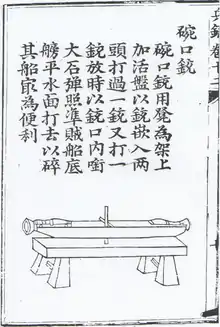 碗口銃
碗口銃用凳為架上
加活盤以銃嵌入两
頭打過一銃又打一
銃放時以銃口内啣
大石弹照準賊船底
艕平水面打去以碎
其船最為便利